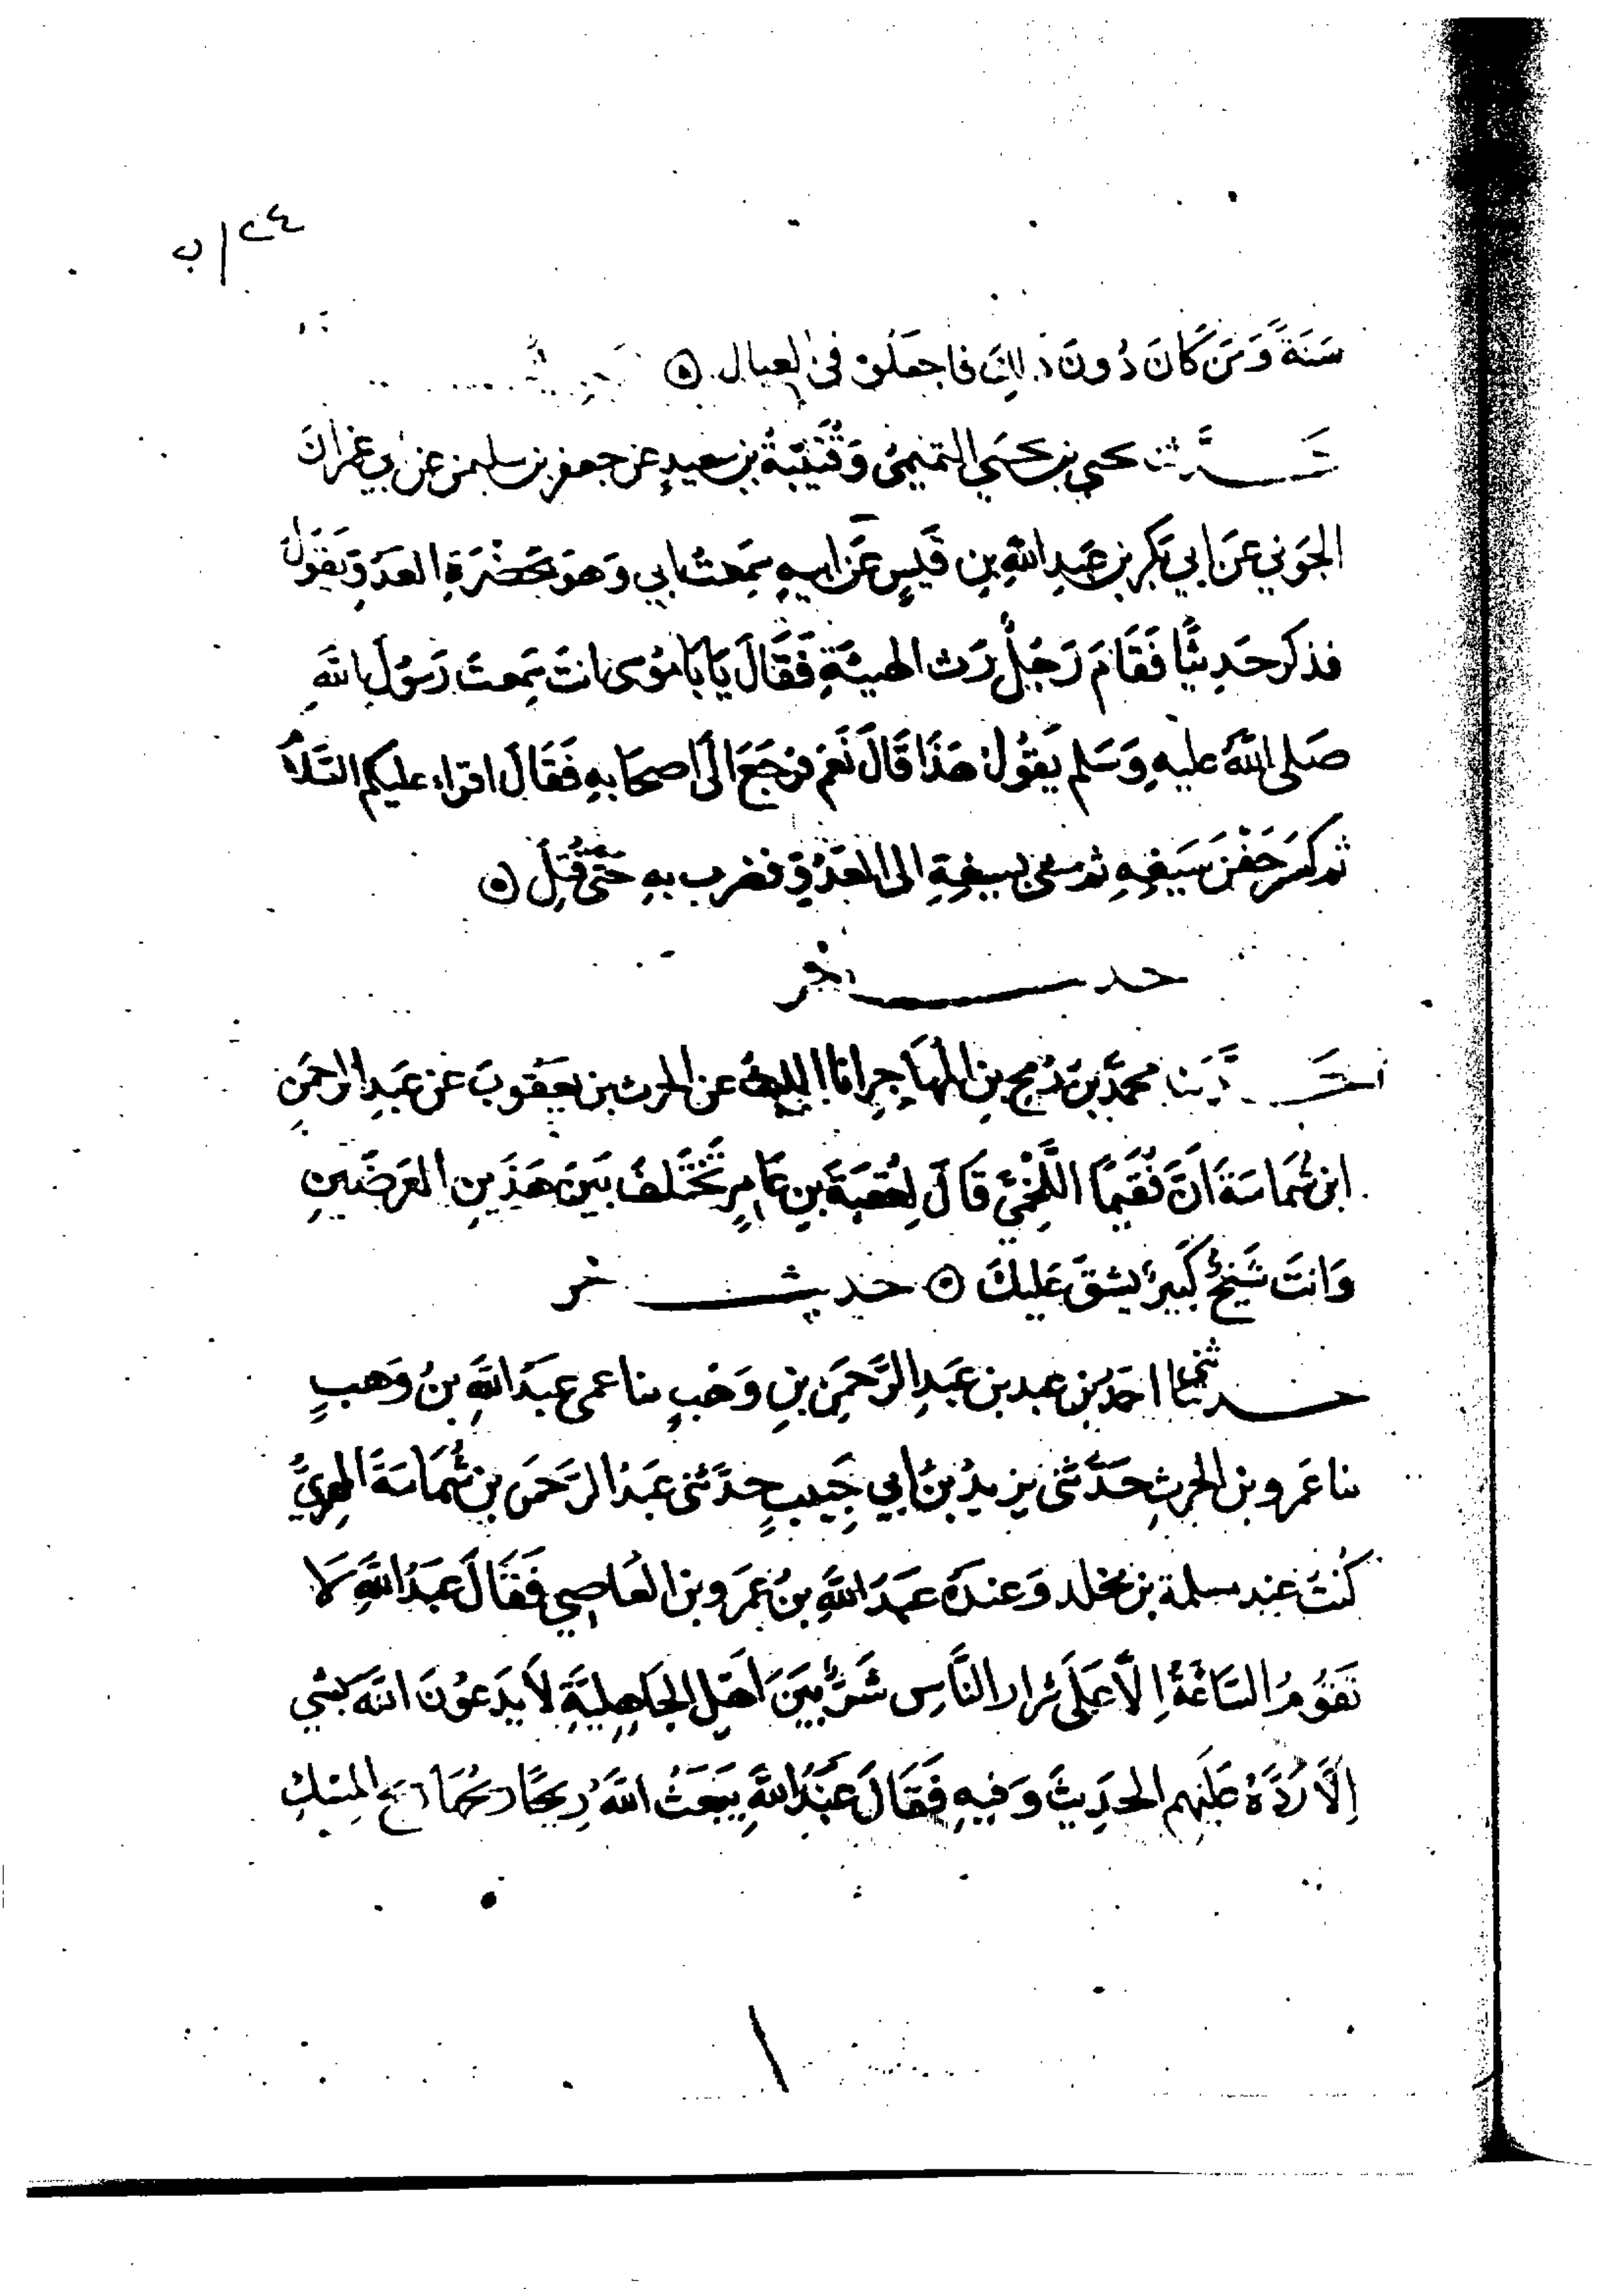 ٢٤/ب
سَنَةً وَمَن كَانَ دُونَ ذلِكَ فاجعَلوه في العيال ۞
حَدَّثنا يحيى بن يحيَى التميمىُ وَقُتَيبَةُ بن سعيدٍ عن جعفر بن سليمن عن ابي عِمرانَ
الجَوني عَن ابي بَكرِ بن عَبدِ اللَّهِ بنِ قَيسٍ عَن ابيهِ سَمِعتُ ابي وَهوَ بحَضْرَةِ العدَوِّ يَقولُ
فذكر حَدِيثًا فَقَامَ رَجُلٌ رَث الهيئَةِ فَقَالَ يَا بَا مُوسَى انتَ سَمِعتَ رَسُولَ اللَّهِ
صَلى اللَّهُ عليهِ وَسَلم يَقُولُ هَذَا قَالَ نَعَم فرَجَعَ الَى اصحَابهِ فَقَالَ اقراء عليكم السَلاَم
ثم كسَرَ جَفْنَ سَيفهِ ثم مشى بسيفهِ الى العَدُوِّ فضرب بهِ حَتَّى قُتِلَ ۞
حديث اخر
حَدَّثنا محمدُ بنُ رُمحِ بنِ المُهَاجِرِ انَا الليثُ عن الحرث بن يَعقوبَ عَن عَبدِ الرحمَنِ
ابن شُمَاسَةَ انَّ فُقَيمًا اللَّخْمِيَّ قَالَ لِعُقبَةَ بنِ عَامِرٍ تَختَلفُ بَينَ هَذَينِ الغَرَضَينِ
وَانتَ شَيخٌ كَبيرٌ يشقّ عَليكَ ۞ حَديث اخر
حدثنى احمَدُ بن عبد بن عَبدِ الرَّحمَنِ بنِ وَهْبٍ ثنا عمى عَبدُ اللَّهِ بنُ وَهبٍ
ثنا عَمرو بن الحرثِ حَدَّثَنى يزيدُ بنُ ابي حَبِيبٍ حدَّثنى عَبدُ الرَّحمَن بن شُمَاسَةَ المهرِيُّ
كُنتُ عِند مسلمة بن مخلد وَعندَهُ عَبدُ اللَّهِ بنُ عَمرو بن العَاصِي فَقَالَ عَبدُ اللَّهِ لاَ
تَقُومُ السَاعَةُ إلاَّ عَلَى شرارِ النَّاسِ شَرٌّ مِن اَهلِ الجَاهِليَّةِ لاَ يَدعُونَ اللَّهَ بشَي
اِلَّا رُدَّهُ عَلَيهم الحَدِيثَ وَفيهِ فَقَالَ عَبدُ اللَّهِ يَبعَثُ اللَّهُ رِيحًا ريحُهَا ريح المِسْكِ